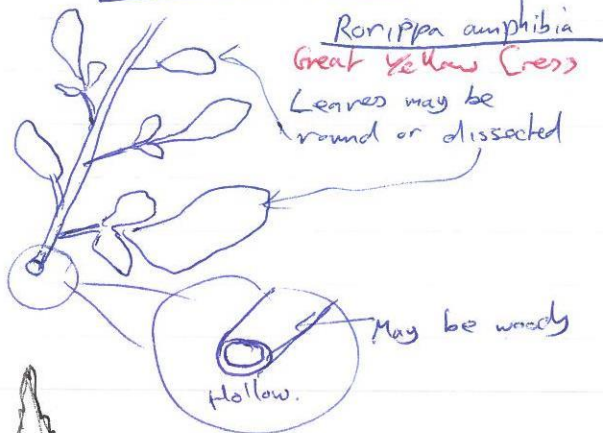 Rorippa amphibia
Great Yellow Cress
Leaves may be
round or dissected
May be woody
Hollow.